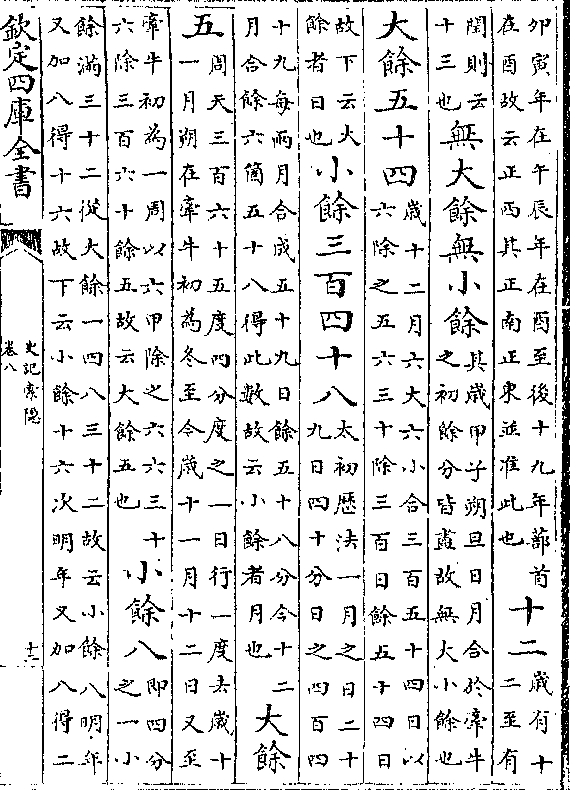 卯寅年在午辰年在酉至後十九年蔀首
在酉故云正西其正南正東並准此也
十二
歲有十
二至有
閏則云
十三也
無大餘無小餘
其歲甲子朔旦日月合於牽牛
之初餘分皆盡故無大小餘也
大餘五十四
歲十二月六大六小合三百五十四日以
六除之五六三十除三百日餘五十四日
故下云大
餘者日也
小餘三百四十八
太初歷法一月之日二十
九日四十分日之四百四
十九每兩月合成五十九日餘五十八分今十二
月合餘六箇五十八得此數故云小餘者月也
大餘
五
周天三百六十五度四分度之一日行一度去歲十
一月朔在牽牛初為冬至今歲十一月十二日又至
牽牛初為一周以六甲除之六六三十
六除三百六十餘五故云大餘五也
小餘八
即四分
之一小
餘滿三十二從大餘一四八三十二故云小餘八明年
又加八得十六故下云小餘十六次明年又加八得二
欽定四庫全書
史記索隱
卷八